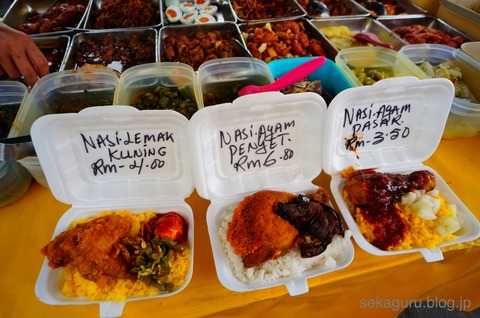 NASI LEMAK
KUNING
RM-4.00
NASI AYAM
PENYET
RM6.80
NASI AYAM
PASAR
RM-3.50
sekaguru.blog.jp